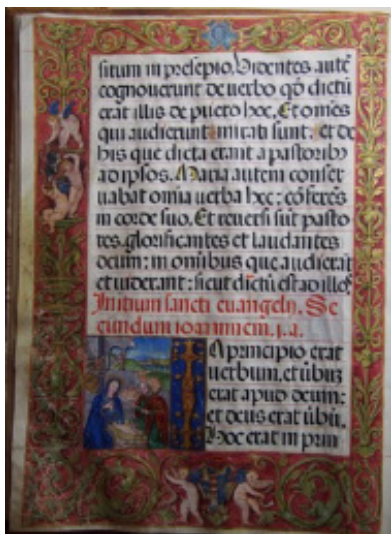 situm in presepio. Videntes autē
cognouerunt de uerbo qō dictū
erat illis de puero hoc. Et omēs
qui audierunt mirati sunt: et de
his que dicta erant a pastoribȝ
ad ipsos. Maria autem conser
uabat omīa uerba hec: cōferēs
in corde suo. Et reuersi sūt pasto
res. glorificantes et laudantes
deum: in omībus que audierāt
et uiderant: sicut dictū est ad illos.
Initium sancti euangelij. Se
cundum ioannnem. j. a.
In principio erat
uerbum, et ūbūȝ
erat apud deum:
et deus erat ūbū.
Hoc erat in prin